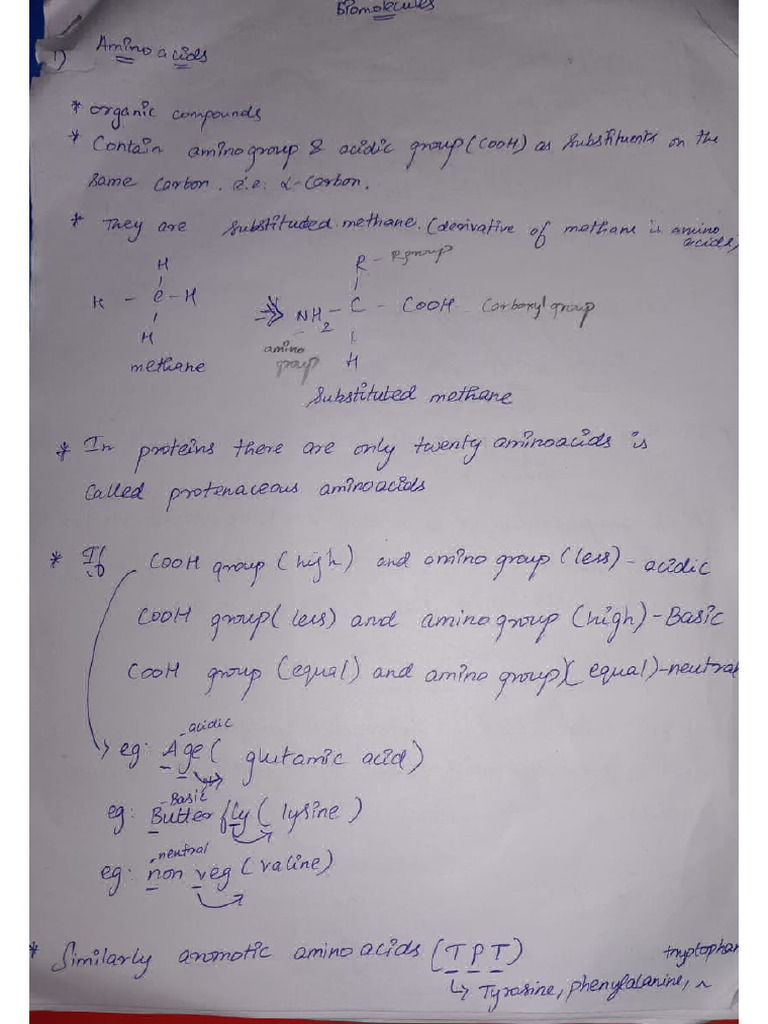 Biomolecules
1) Amino acids
* organic compounds
* Contain aminogroup & acidic group (COOH) as substituents on the
same carbon. i.e. α-carbon.
* They are substituted methane. (derivative of methane is amino
acids)
H
H - C - H
H
methane
R - R group
NH2 - C - COOH Carboxyl group
amino
group
H
Substituted methane
* In proteins there are only twenty aminoacids is
called protenaceous aminoacids
* If COOH group (high) and amino group (less) - acidic
COOH group (less) and amino group (high) - Basic
COOH group (equal) and amino group) (equal) - neutral
- acidic
eg: Age ( glutamic acid)
- Basic
eg: Butterfly ( lysine )
neutral
eg: non veg (valine)
* Similarly aromotic amino acids (TPT)
tryptophan
↳ Tyrosine, phenylalanine,